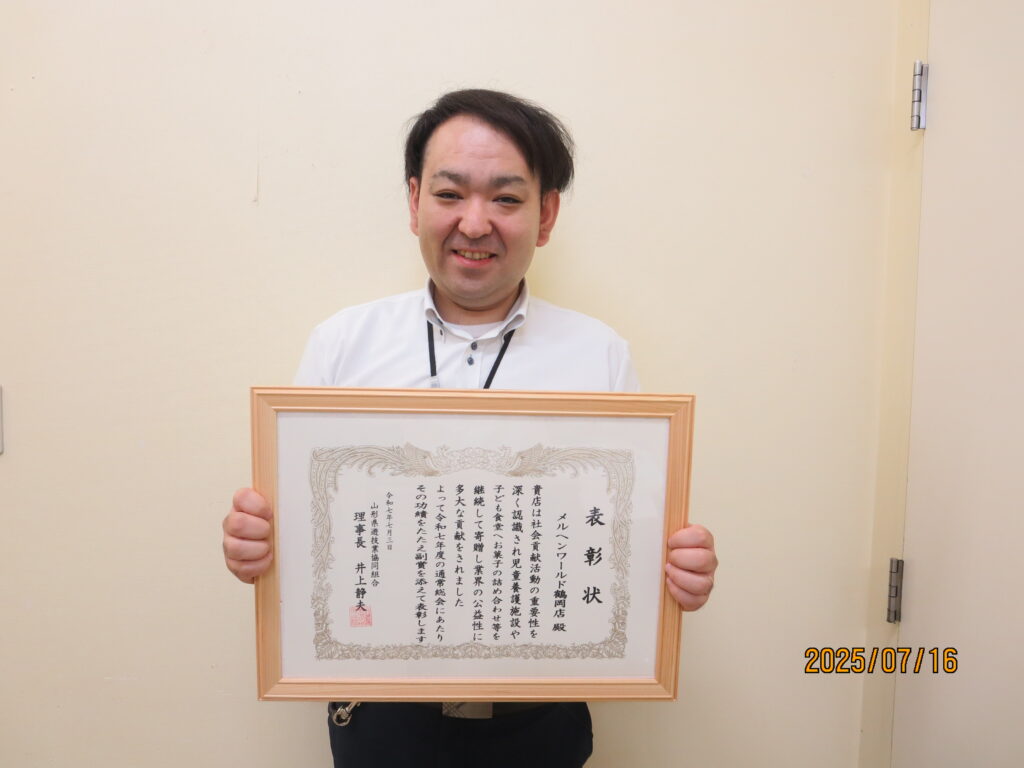 表彰状
メルヘンワールド鶴岡店 殿
貴店は社会貢献活動の重要性を
深く認識され児童養護施設や
子ども食堂へお菓子の詰め合わせ等を
継続して寄贈し業界の公益性に
多大な貢献をされました
よって令和七年度の通常総会にあたり
その功績をたたえ副賞を添えて表彰します
令和七年七月三日
山形県遊技業協同組合
理事長 井上静夫
2025/07/16